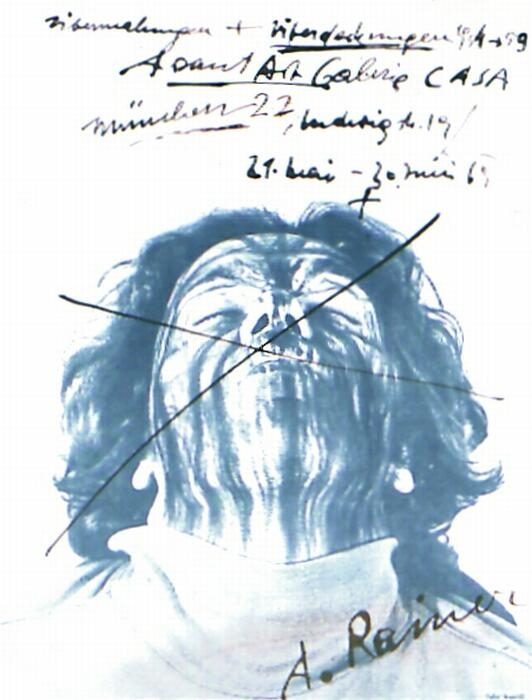 übermalungen + überdeckungen 54→59
Avant Art Galerie CASA
München 22, Ludwigstr. 19/
21. Mai - 30. Juni 69
A. Rainer